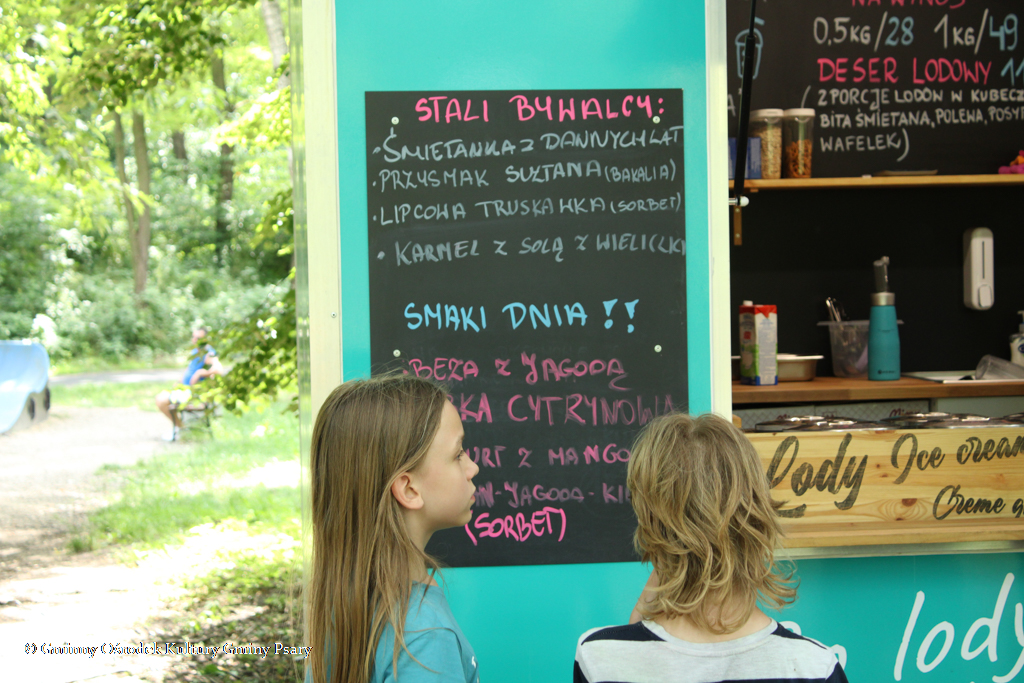 STALI BYWALCY:
• ŚMIETANKA Z DAWNYCH LAT
• PRZYSMAK SUŁTANA (BAKALIA)
• LIPCOWA TRUSKAWKA (SORBET)
• KARMEL Z SOLĄ Z WIELICZKI
SMAKI DNIA !!
BEZA Z JAGODĄ
CYTRYNOWA
Z MANGO
-JAGODA-
(SORBET)
NA WYNOS
0,5KG/28 1KG/49
DESER LODOWY
(2 PORCJE LODÓW W KUBECZ
BITA ŚMIETANA, POLEWA, POSY
WAFELEK)
Lody Ice cream
Creme
lody
© Gminny Ośrodek Kultury Gminy Psary